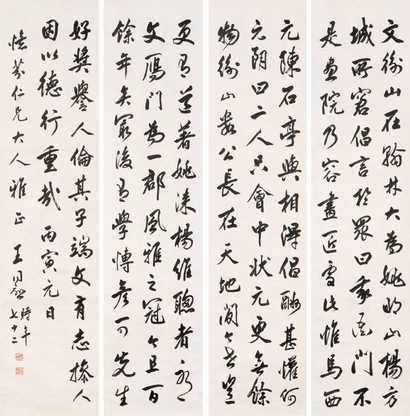 文衡山在翰林大為姚明山楊方
城所窘倡言於眾曰我衙門不
是畫院乃容畫匠處此惟馬西
元陳石亭與相得倡酬甚懽何
元朗曰二人只會中狀元更無餘
物衡山數公長在天地間豈
更有道著姚淶楊維聰者
文雁門為一郡風雅之冠且百
餘年矣後有學博彥可先生
好獎譽人倫其子端文有志操人
因以德行重哉 丙寅元日
憶芬仁兄大人雅正 王同愈 時年七十二